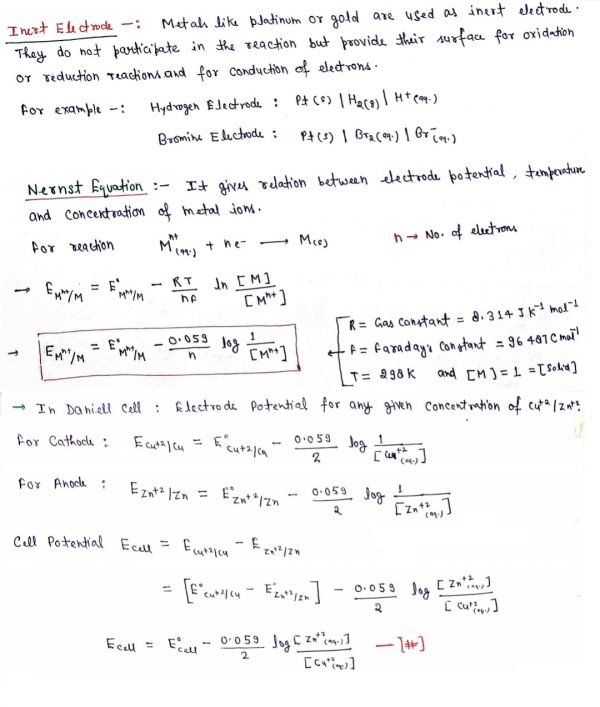 Inert Electrode -: Metals like platinum or gold are used as inert electrode.
They do not participate in the reaction but provide their surface for oxidation
or reduction reactions and for conduction of electrons.
For example -: Hydrogen Electrode : Pt(s) | H₂(g) | H⁺(aq.)
Bromine Electrode : Pt(s) | Br₂(aq.) | Br⁻(aq.)
Nernst Equation :- It gives relation between electrode potential, temperature
and concentration of metal ions.
For reaction Mⁿ⁺(aq.) + ne⁻ → M(s) n → No. of electrons
→ E Mⁿ⁺/M = E° Mⁿ⁺/M - RT/nF ln [M]/[Mⁿ⁺]
→ E Mⁿ⁺/M = E° Mⁿ⁺/M - 0.059/n log 1/[Mⁿ⁺]
R = Gas Constant = 8.314 J K⁻¹ mol⁻¹
← F = Faraday's Constant = 96487 C mol⁻¹
T = 298 K and [M] = 1 = [Solid]
→ In Daniell Cell : Electrode Potential for any given Concentration of Cu⁺²/Zn⁺².
For Cathode : E Cu⁺²/Cu = E° Cu⁺²/Cu - 0.059/2 log 1/[Cu⁺²(aq.)]
For Anode : E Zn⁺²/Zn = E° Zn⁺²/Zn - 0.059/2 log 1/[Zn⁺²(aq.)]
Cell Potential E cell = E Cu⁺²/Cu - E Zn⁺²/Zn
= [E° Cu⁺²/Cu - E° Zn⁺²/Zn] - 0.059/2 log [Zn⁺²(aq.)]/[Cu⁺²(aq.)]
E cell = E° cell - 0.059/2 log [Zn⁺²(aq.)]/[Cu⁺²(aq.)] —